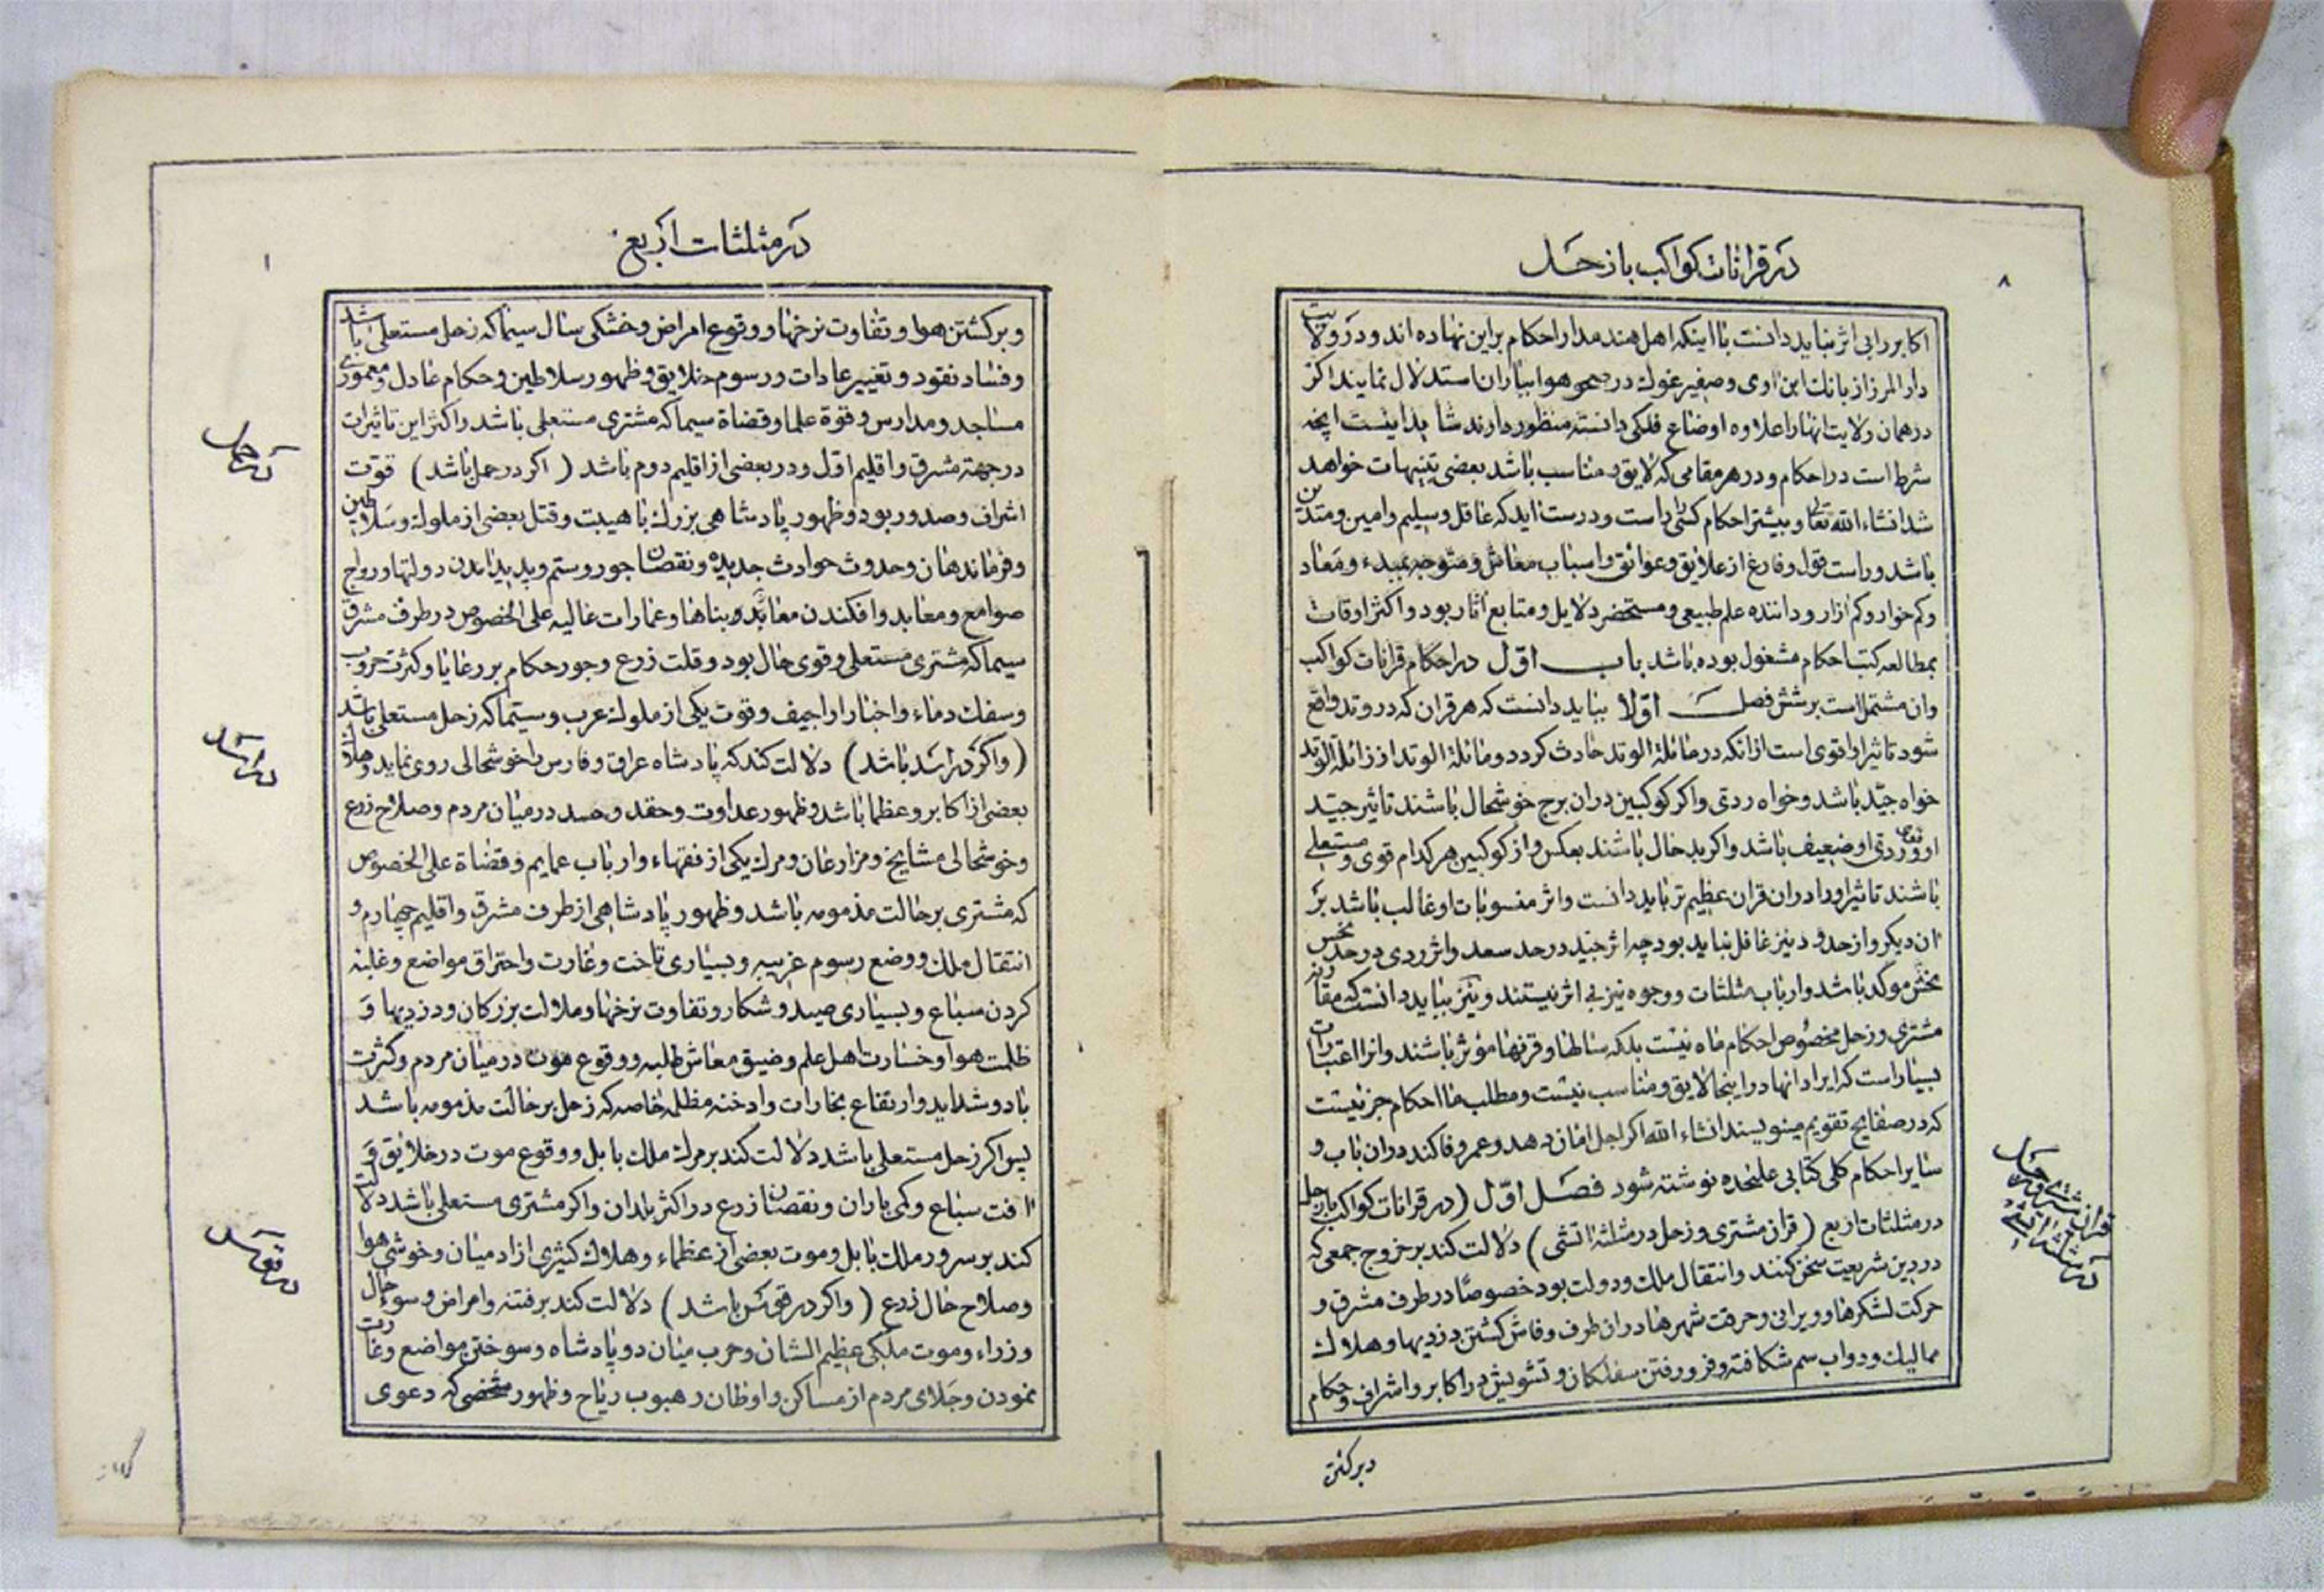 در قرانات کواکب با زحل
۸
اکابر را بی اثر نباید دانست با اینکه اهل هند مدار احکام بر این نهاده اند و در ولایت
دار المرز از بانک ابن اوی و صفیر غوک در صحو هوا بباران استدلال نمایند اکر
در همان ولایت انها را علاوه اوضاع فلکی دانسته منظور دارند شاید اینست انچه
شرط است در احکام و در هر مقامی که لایق و مناسب باشد بعضی تنبیهات خواهد
شد انشاء الله تعالی و بیشتر احکام کسی راست و درست اید که عاقل و سلیم و امین و متدین
باشد و راست قول و فارغ از علایق و عوائق و اسباب معاش و متوجه بمبدء و معاد
و کم خوار و کم ازار و داننده علم طبیعی و مستحضر دلایل و متابع اثار بود و اکثر اوقات
بمطالعه کتب احکام مشغول بوده باشد باب اول در احکام قرانات کواکب
وان مشتمل است بر شش فصل اولا بباید دانست که هر قران که در وتد واقع
شود تاثیر او اقوی است از انکه در مائلة الوتد حادث کردد و مائلة الوتد از زائلة الوتد
خواه جید باشد و خواه ردی و اکر کوکبین در ان برج خوشحال باشند تاثیر جید
او قوی و ردی او ضعیف باشد و اکر بد حال باشند بعکس و از کوکبین هر کدام قوی و مستعلی
باشند تاثیر او را در ان قران عظیم تر باید دانست و اثر منسوبات او غالب باشد بر
ان دیکر و از حدود نیز غافل نباید بود چه اثر جید در حد سعد و اثر ردی در حد نحس
نحس موکد باشد و ارباب مثلثات و وجوه نیز بی اثر نیستند و نیز بباید دانست که مقارنه
مشتری و زحل مخصوص احکام ماه نیست بلکه سالها و قرنها مؤثر باشند و انرا اعتبارات
بسیار است که ایراد انها در اینجا لایق و مناسب نیست و مطلب ما احکام جز نیست
که در صفایح تقویم مینویسند انشاء الله اکر اجل امان دهد و عمر وفا کند در ان باب و
سایر احکام کلی کتابی علیحده نوشته شود فصل اول (در قرانات کواکب با زحل
در مثلثات اربع (قران مشتری و زحل در مثلثه اتشی) دلالت کند بر خروج جمعی که
در دین شریعت سخن کنند و انتقال ملک و دولت بود خصوصًا در طرف مشرق و
حرکت لشکرها و ویرانی و حرقت شهرها در ان طرف و فاش کشتن دزدیها و هلاک
ممالیک و دواب سم شکافته و فرو رفتن سفلکان و تشویش در اکابر و اشراف و حکام
قران مشتری و زحل
در مثلثه اتشی
و برکشتن
در مثلثات اربع
و برکشتن هوا و تفاوت نرخها و وقوع امراض و خشکی سال سیما که زحل مستعلی باشد
و فساد نقود و تغییر عادات و رسوم خلایق و ظهور سلاطین و حکام عادل و معموری
مساجد و مدارس و قوة علما و قضاة سیما که مشتری مستعلی باشد و اکثر این تاثیرات
در جهة مشرق و اقلیم اول و در بعضی از اقلیم دوم باشد (اکر در حمل باشد) قوت
اشراف و صدور بود و ظهور پادشاهی بزرک با هیبت و قتل بعضی از ملوک و سلاطین
و فرماندهان و حدوث حوادث جدیده و نقصان جور و ستم و پدید امدن دولتها و رواج
صوامع و معابد و افکندن معابد و بناها و عمارات عالیه علی الخصوص در طرف مشرق
سیما که مشتری مستعلی و قوی حال بود و قلت زرع و جور حکام بر رعایا و کثرت حروب
و سفک دماء و اخبار اراجیف و قوت یکی از ملوک عرب و سیما که زحل مستعلی باشد
(و اکر در اسد باشد) دلالت کند که پادشاه عراق و فارس را خوشحالی روی نماید و هلاک
بعضی از اکابر و عظما باشد و ظهور عداوت و حقد و حسد در میان مردم و صلاح زرع
و خوشحالی مشایخ و مزارعان و مرک یکی از فقهاء و ارباب عمایم و قضاة علی الخصوص
که مشتری بر حالت مذمومه باشد و ظهور پادشاهی از طرف مشرق و اقلیم چهارم و
انتقال ملک و وضع رسوم غریبه و بسیاری تاخت و غارت و احتراق مواضع و غلبه
کردن سباع و بسیاری صید و شکار و تفاوت نرخها و ملالت بزرکان و دزدیها و
ظلمت هوا و خسارت اهل علم و ضیق معاش طلبه و وقوع موت در میان مردم و کثرت
باد و شداید و ارتفاع بخارات و ادخنه مظلمه خاصه که زحل بر حالت مذمومه باشد
پس اکر زحل مستعلی باشد دلالت کند بر مرک ملک بابل و وقوع موت در خلایق و
افت سباع و کمی باران و نقصان زرع در اکثر بلدان و اکر مشتری مستعلی باشد دلالت
کند بر سرور ملک بابل و موت بعضی از عظماء و هلاک کثیری از ادمیان و خوشی هوا
و صلاح حال زرع (و اکر در قوس باشد) دلالت کند بر فتنه و امراض و سوء حال
وزراء و موت ملکی عظیم الشان و حرب میان دو پادشاه و سوختن مواضع و غارت
نمودن و جلای مردم از مساکن و اوطان و هبوب ریاح و ظهور شخصی که دعوی
در حمل
در اسد
در قوس